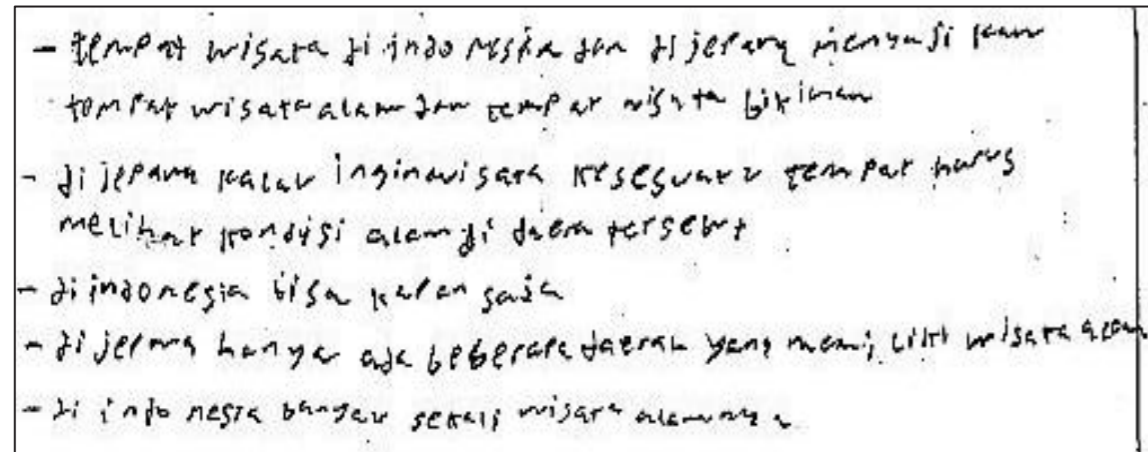 - tempat wisata di indonesia dan di jepang menyajikan
tempat wisata alam dan tempat wisata bikinan
- di jepang kalau ingin wisata kesesuatu tempat harus
melihat kondisi alam di daera tersebut
- di indonesia bisa kapan saja
- di jepang hanya ada beberapa daerah yang memiliki wisata alam
- di indonesia banyak sekali wisata alamnya